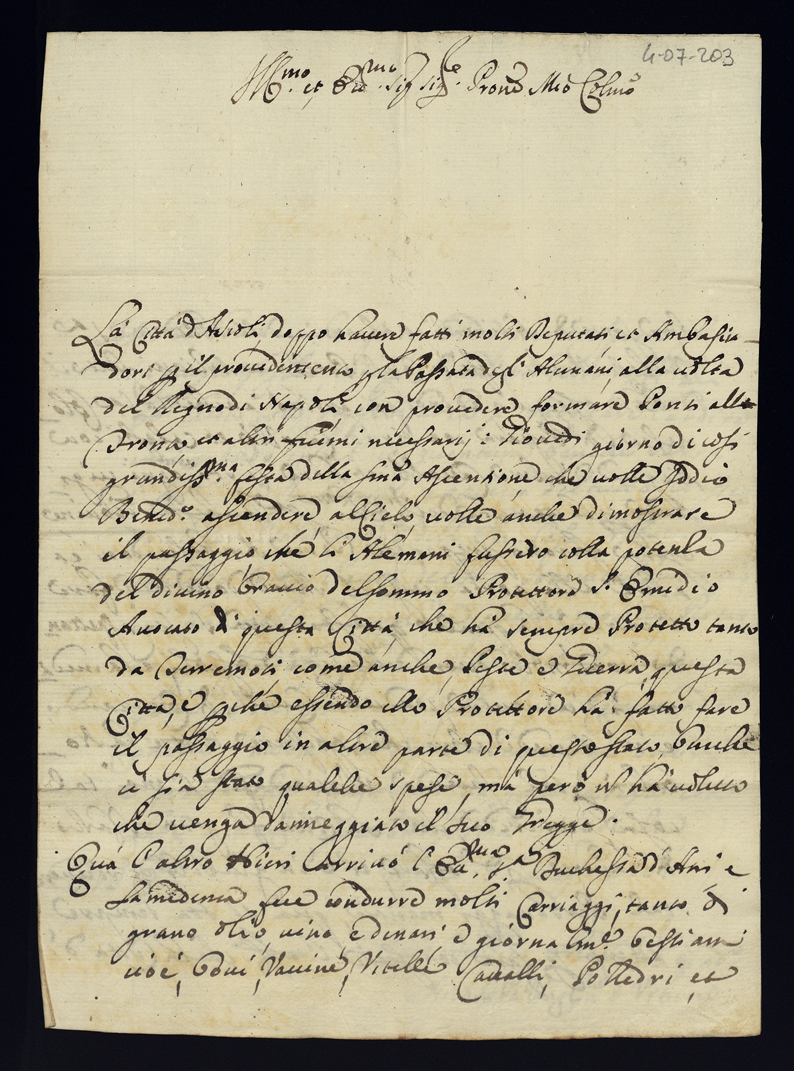 4-07-203
Ill.mo et Ecc.mo Sig.r Sig.re Prone Mio Colmo
La Città d'Ascoli doppo havere fatti molti Deputati et Ambascia
dori p il provedere la Passata degl' Alemani alla volta
del Regno di Napoli con provedere formare Ponti alle
Tronto et altri fiumi necessarij: Giovedi giorno di così
grandiss.ma festa della sma Ascensione che volle Iddio
Bened.o ascendere al Cielo, volle anche dimostrare
il passaggio che li Alemani fussero colla potenza
del divino braccio del sommo Protettore S. Emidio
Avocato di questa Città, che ha sempre Protetto tanto
da Terremoti come anche Peste e Guerra questa
Città, e p che essendo Protettore ha fatto fare
il passaggio in altre parte di questo stato benche
ci sia stato qualche spese, mà però n ha voluto
che venga danneggiato il suo Gregge.
Quà l'altro hieri arrivò l'Ecc.ma Sra Duchessa d'Atri e
la medema fece condurre molti Carriaggi, tanto di
grano olio, vino, e denari e giornalm.e bestiami
cioè, bovi, Vaccine, Vitelle Cavalli, Polledri, et